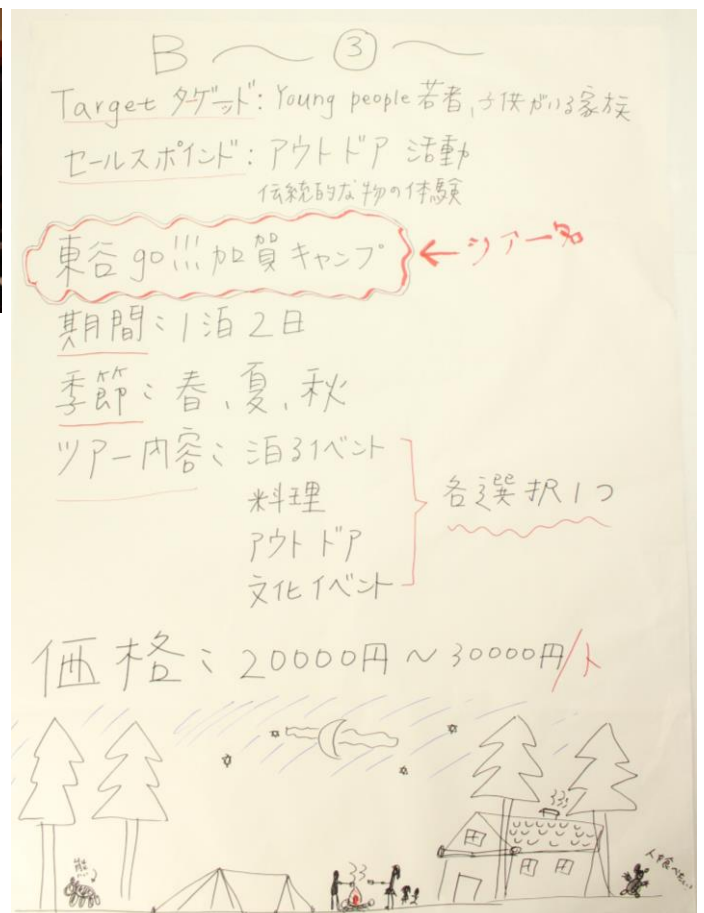 B ～ ③ ～
Target タゲッド: Young people 若者, 子供がいる家族
セールスポインド: アウトドア 活動
伝統的な物の体験
東谷 go!!! 加賀 キャンプ ← ツアー名
期間: 1泊2日
季節: 春、夏、秋
ツアー内容: 泊るイベント
料理
アウトドア
文化イベント
各選択1つ
価格: 20000円～30000円/人
熊